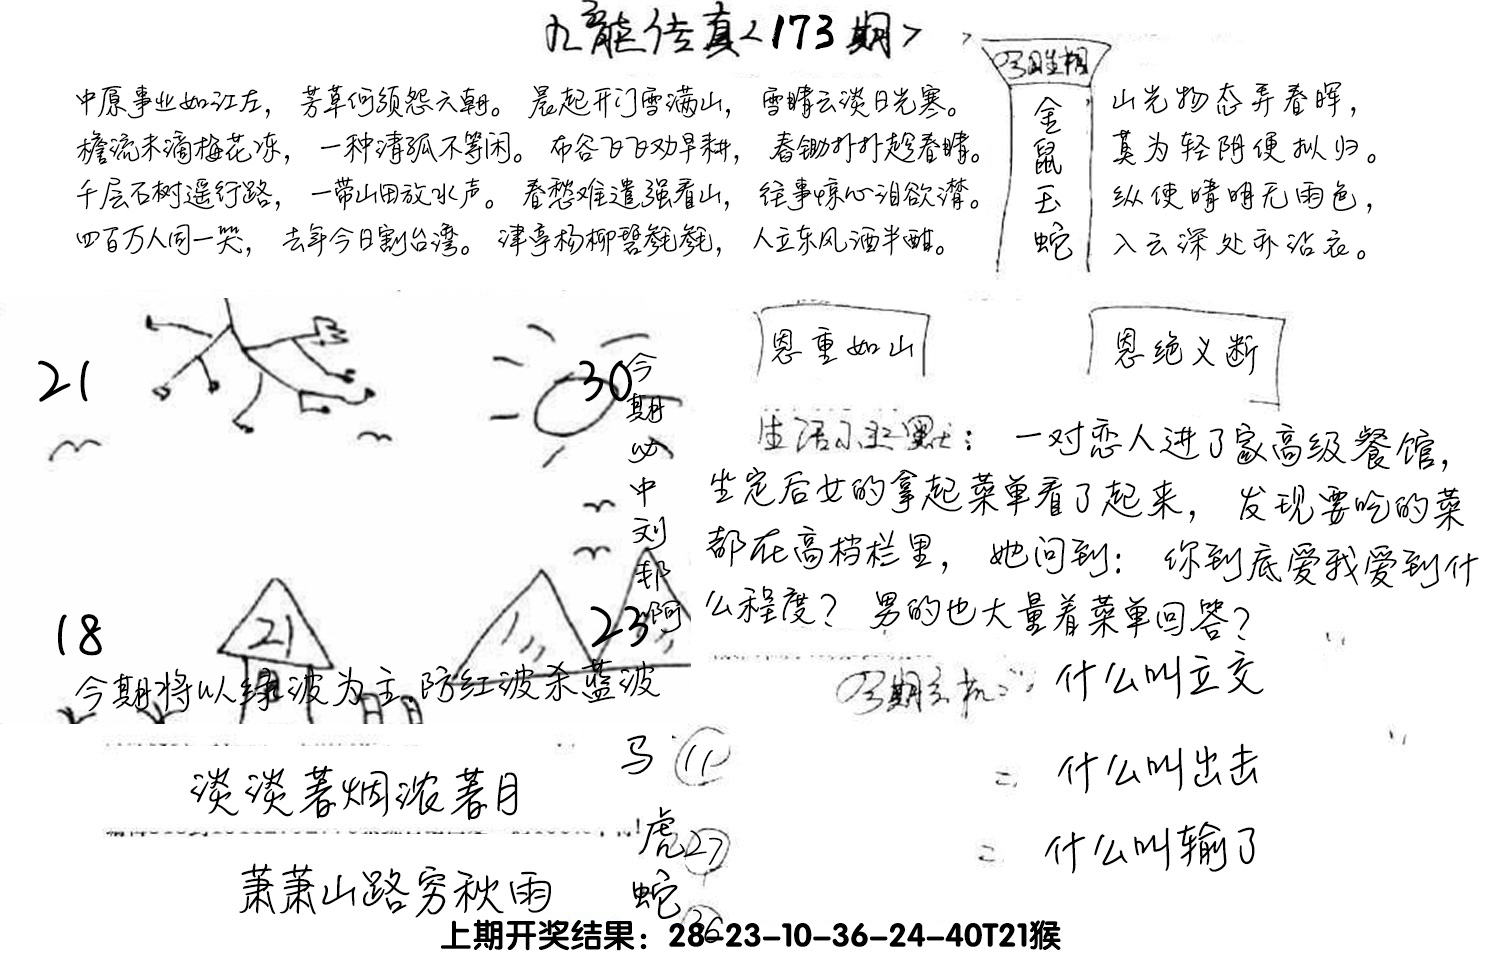 九龙传真<173期>
中原事业如江左，芳草何须怨六朝。晨起开门雪满山，雪晴云淡日光寒。
檐流未滴梅花冻，一种清孤不等闲。布谷飞飞劝早耕，春锄扑扑趁春晴。
千层石树遥行路，一带山田放水声。春愁难遣强看山，往事惊心泪欲潸。
四百万人同一哭，去年今日割台湾。津亭杨柳碧毵毵，人立东风酒半酣。
金
鼠
玉
蛇
山光物态弄春晖，
莫为轻阴便拟归。
纵使晴明无雨色，
入云深处亦沾衣。
21
30
今期必中刘邦阿
18
21
23
今期将以绿波为主防红波杀蓝波
恩重如山
恩绝义断
生活小幽默：一对恋人进了家高级餐馆，
坐定后女的拿起菜单看了起来，发现要吃的菜
都在高档栏里，她问到：你到底爱我爱到什
么程度？男的也大量着菜单回答？
今期玄机：什么叫立交
= 什么叫出击
= 什么叫输了
淡淡暮烟浓暮月
萧萧山路穷秋雨
马 11
虎 27
蛇 36
上期开奖结果：28-23-10-36-24-40T21猴